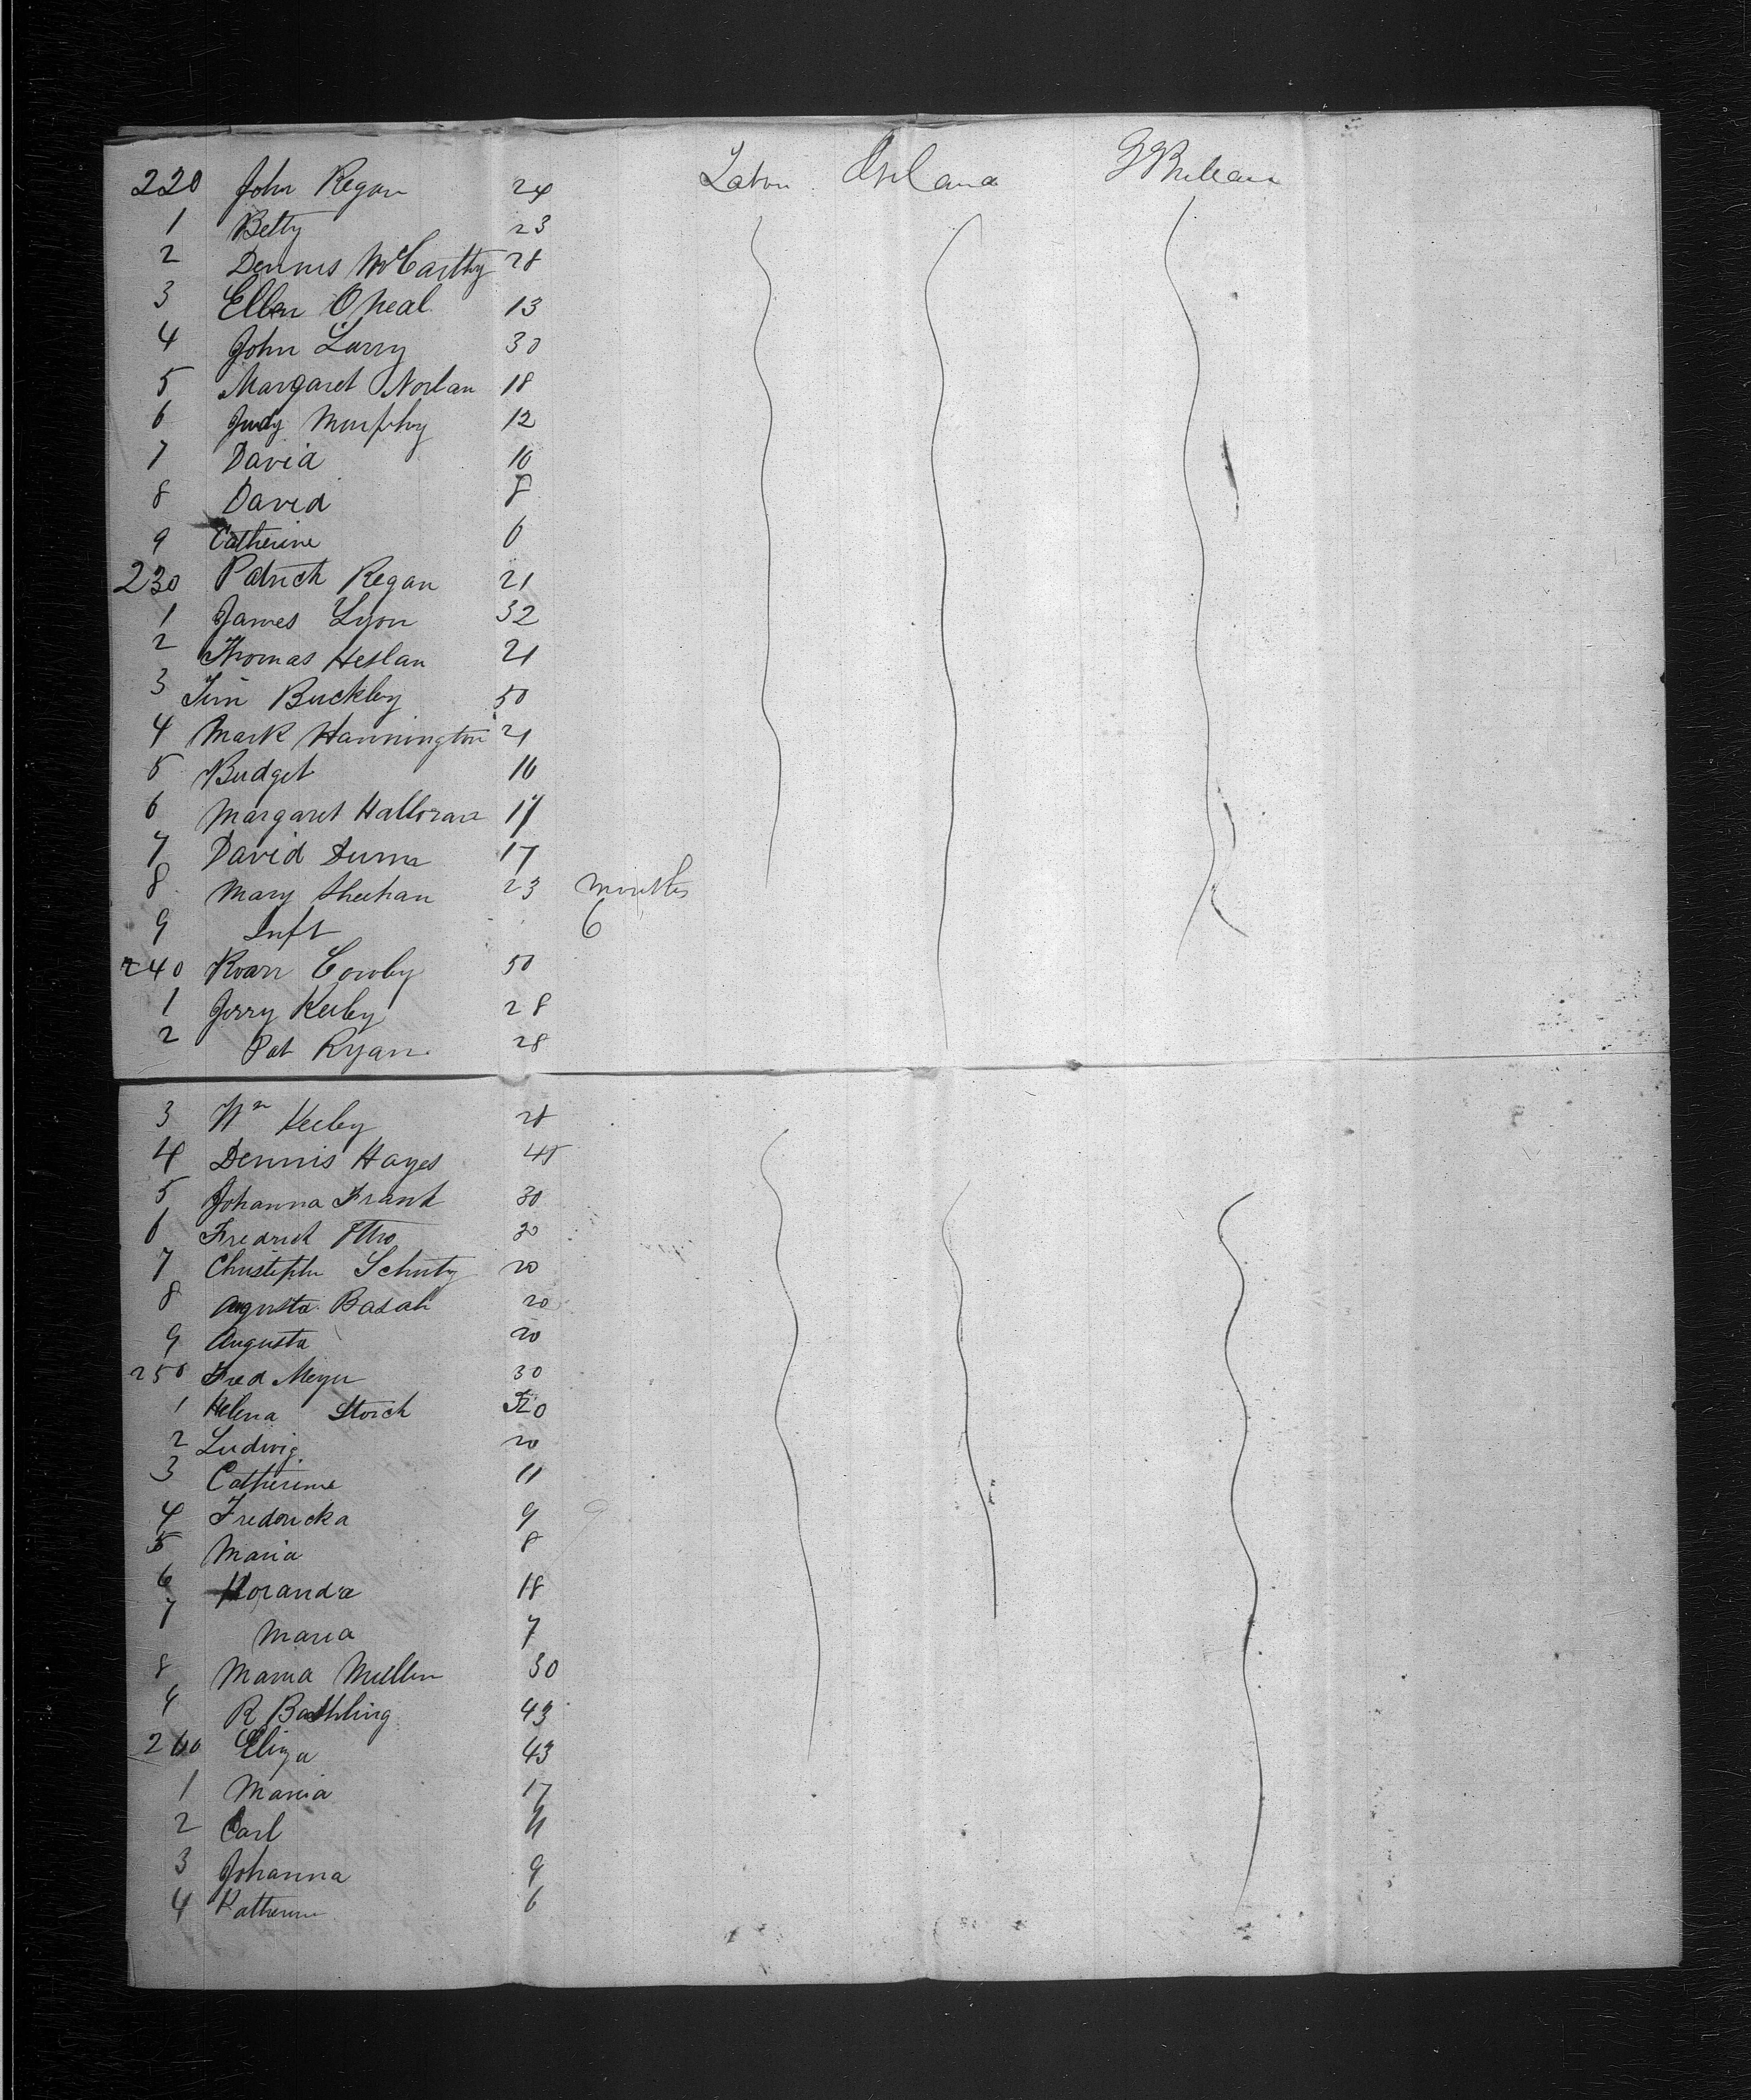 220 John Regan 24 Labor Ireland
1 Betty 23
2 Dennis McCarthy 28
3 Ellen O Neal 13
4 John Larry 30
5 Margaret Norlan 18
6 Judy Murphy 12
7 David 10
8 David 8
9 Catherine 6
230 Patrick Regan 21
1 James Lyon 32
2 Thomas Heslan 21
3 Jim Buckley 50
4 Mark Hannington 21
5 Bridget 16
6 Margaret Halloran 17
7 David Dunn 17
8 Mary Sheehan 23 months
9 Inft 6
240 50
1 Jerry Keeley 28
2 Pat Ryan 28
3 Wm Keeley 28
4 Dennis Hayes 45
5 Johanna Frank 30
6 Fredrick Otto 30
7 Christoph Schutz 20
8 Augusta 20
9 Augusta 20
250 Fred Meyer 30
1 Helena Storck
2 Ludwig 20
3 Catherine 11
4 Fredericka 9
5 Maria 8
6 18
7 Maria 7
8 Maria Muller 30
9 R 43
260 Eliza 43
1 Maria 17
2 Carl 11
3 Johanna 9
4 Katherine 6